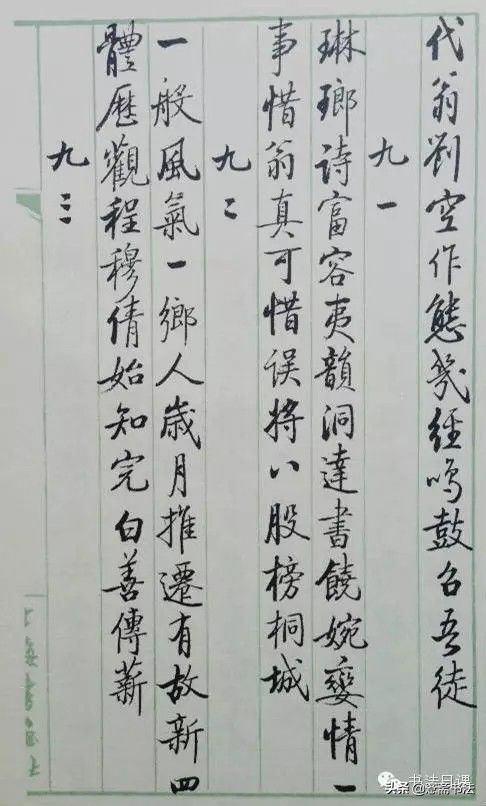 代翁劉空作態幾經鳴鼓召吾徒
九一
琳瑯詩富容夷韻洞達書饒婉孌情一
事惜翁真可惜误将八股榜桐城
九二
一般風氣一鄉人歲月推遷有故新四
體歷觀程穆倩始知完白善傳薪
九三
书法日课
头条@忽斋书法